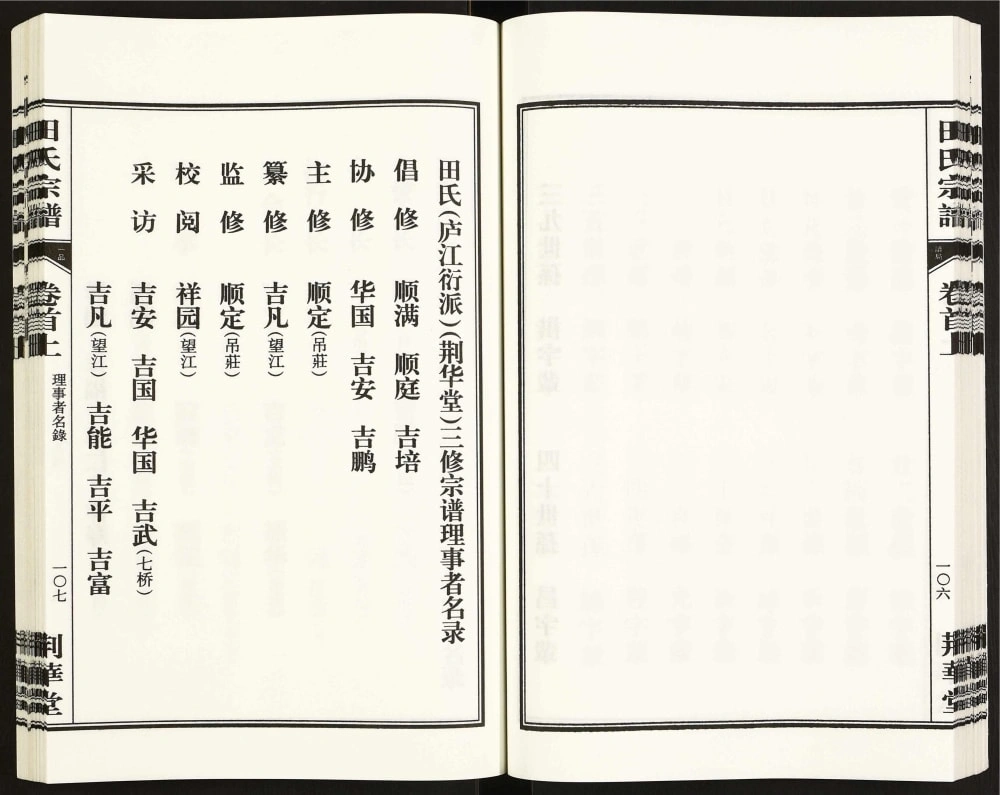 田氏宗譜
譜局
卷首上
一〇六
荆華堂
田氏(庐江衍派)(荆华堂)三修宗谱理事者名录
倡修 顺满 顺庭 吉培
协修 华国 吉安 吉鹏
主修 顺定(吊莊)
纂修 吉凡(望江)
监修 顺定(吊莊)
校阅 祥园(望江)
采访 吉安 吉国 华国 吉武(七桥)
吉凡(望江) 吉能 吉平 吉富
田氏宗譜
一品
卷首上
理事者名錄
一〇七
荆華堂